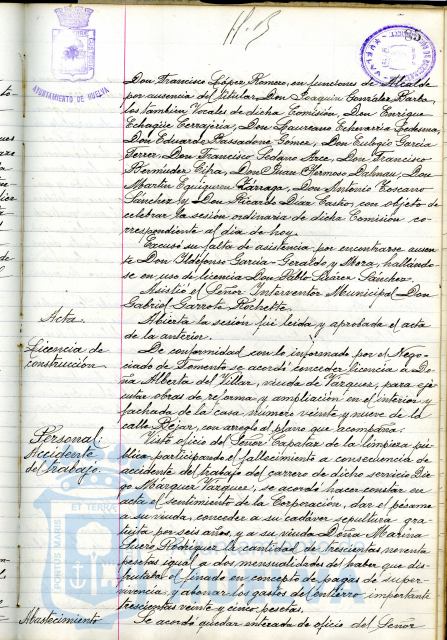 AYUNTAMIENTO DE HUELVA
Don Francisco López Romero, en funciones de Alcalde
por ausencia del titular Don Joaquín González Barba
los también Vocales de dicha Comisión, Don Enrique
Echagüe Cerrajería, Don Laureano Echevarría Ledesma,
Don Eduardo Bassadone Gómez, Don Eulogio García
Ferrer, Don Francisco Sedano Arce, Don Francisco
Bermúdez Don Juan Hermoso Dalmau, Don
Martín Don Antonio Toscano
Sánchez y Don Ricardo Díaz Castro, con objeto de
celebrar la sesión ordinaria de dicha Comisión co-
rrespondiente al día de hoy.
Excusó su falta de asistencia por encontrarse ausen-
te Don Ildefonso García-Geraldo y Mora, hallándo-
se en uso de licencia Don Pablo Suárez Sánchez.
Asistió el Señor Interventor Municipal Don
Gabriel Garrote
Acta.
Abierta la sesión fué leída y aprobada el acta
de la anterior.
Licencia de
construcción
De conformidad con lo informado por el Nego-
ciado de Fomento se acordó conceder licencia a Do-
ña Alberta del Villar, viuda de Vázquez, para eje-
cutar obras de reforma y ampliación en el interior y
fachada de la casa número veinte y nueve de la
calle Béjar, con arreglo al plano que acompaña.
Personal:
Accidente
del trabajo.
Visto oficio del Señor Capataz de la limpieza pú-
blica participando el fallecimiento a consecuencia de
accidente del trabajo del carrero de dicho servicio Die-
go Márquez Vázquez; se acordó hacer constar en
acta el sentimiento de la Corporación, dar el pésame
a su viuda, conceder a su cadáver sepultura gra-
tuita por seis años y a su viuda Doña Marina
Suero Rodríguez la cantidad de trescientas noventa
pesetas igual a dos mensualidades del haber que dis-
frutaba el finado en concepto de pagas de super-
vivencia y abonar los gastos del entierro importante
trescientas veinte y cinco pesetas.
Abastecimiento
Se acordó quedar enterada de oficio del Señor
PORTUS MARIS
ET TERRAE